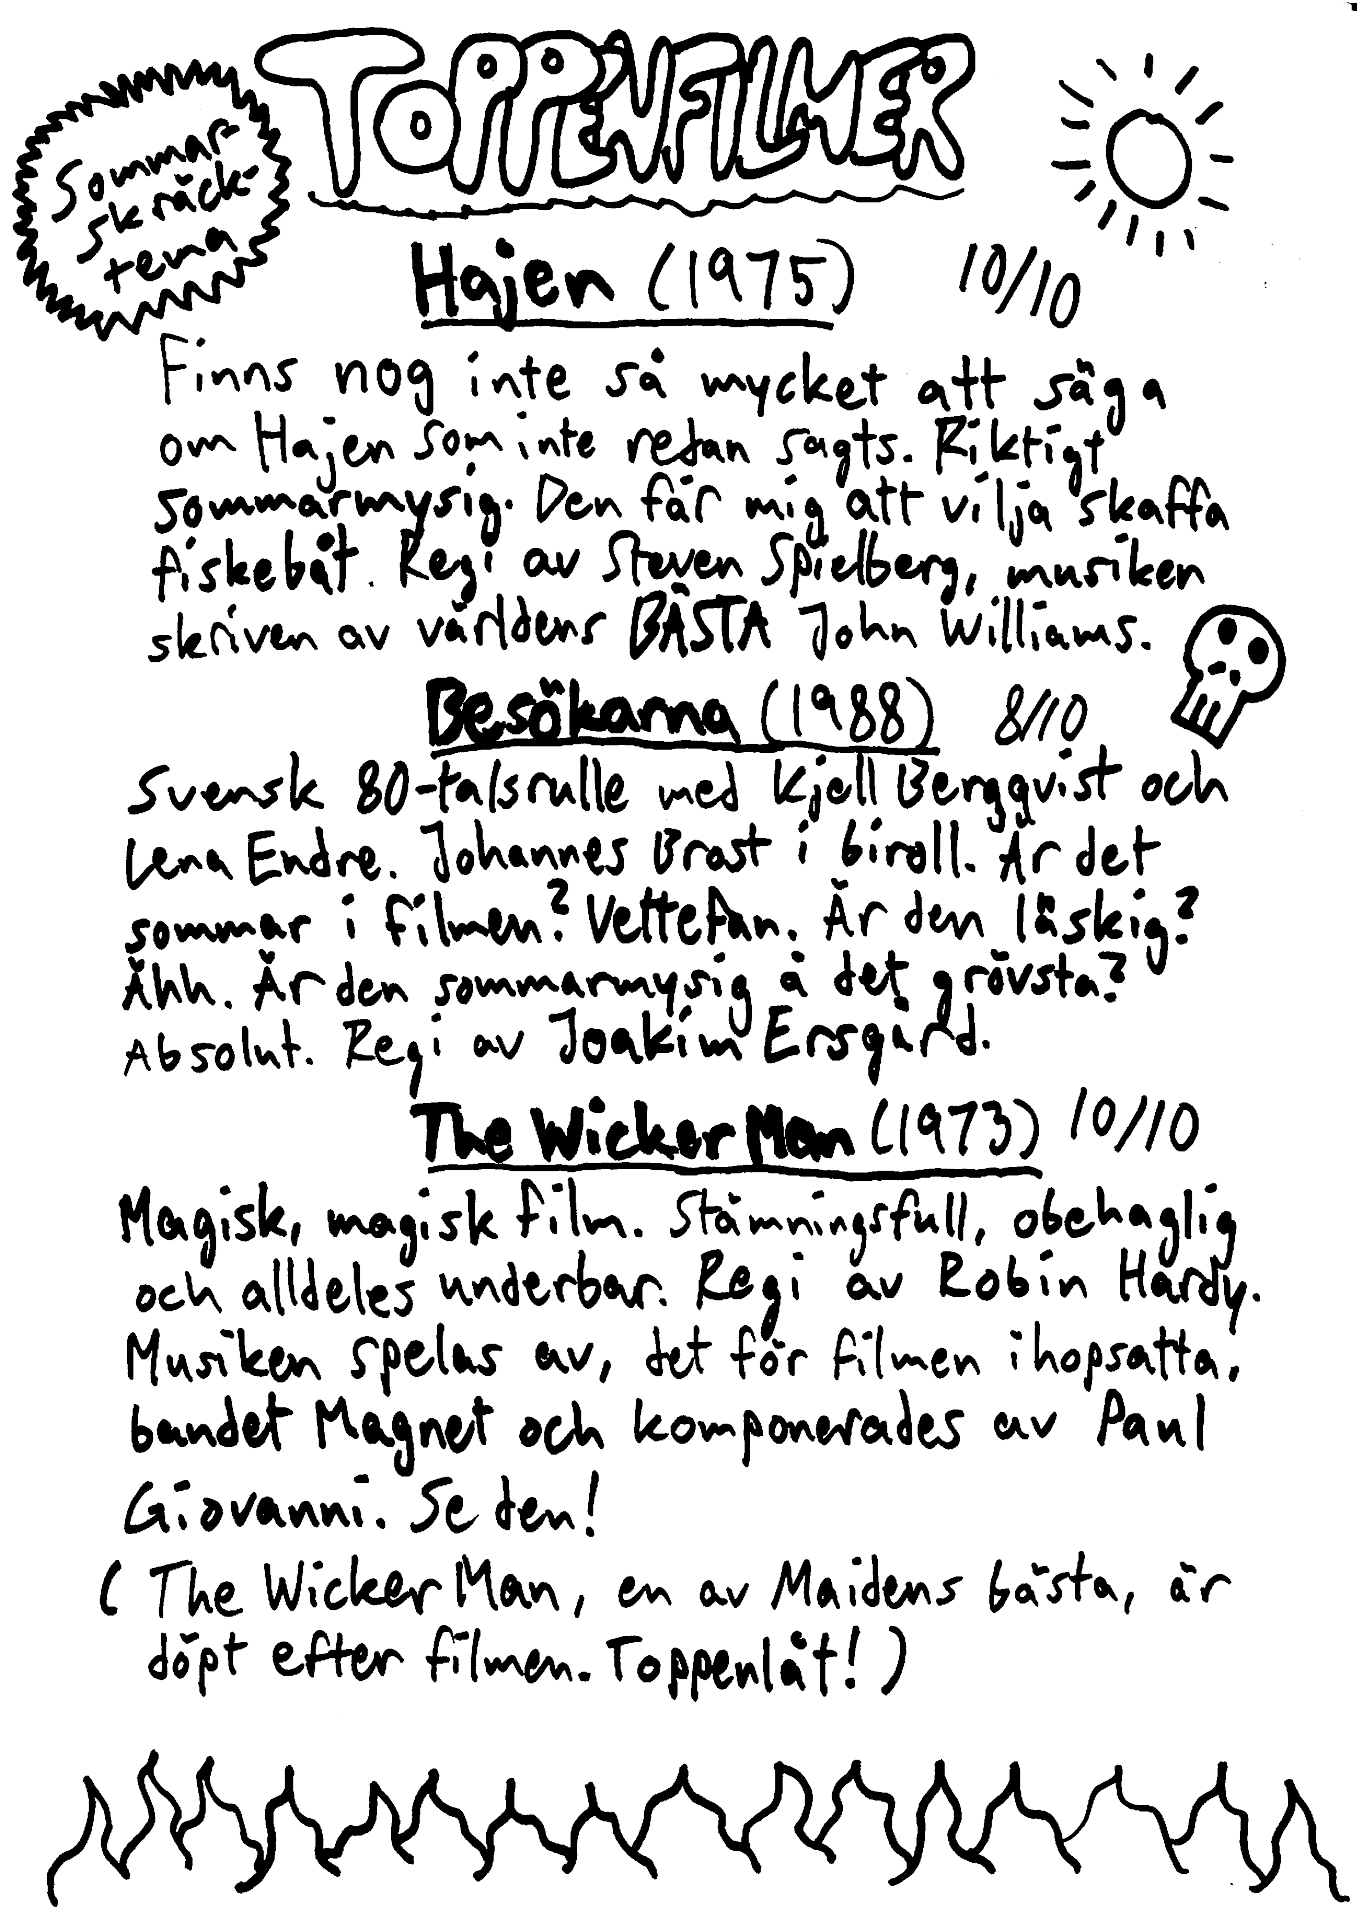 TOPPENFILMER
Sommar-
skräck-
tema
Hajen (1975) 10/10
Finns nog inte så mycket att säga
om Hajen som inte redan sagts. Riktigt
sommarmysig. Den får mig att vilja skaffa
fiskebåt. Regi av Steven Spielberg, musiken
skriven av världens BÄSTA John Williams.
Besökarna (1988) 8/10
Svensk 80-talsrulle med Kjell Bergqvist och
Lena Endre. Johannes Brost i biroll. Är det
sommar i filmen? Vettefan. Är den läskig?
Ähh. Är den sommarmysig å det grövsta?
Absolut. Regi av Joakim Ersgård.
The Wicker Man (1973) 10/10
Magisk, magisk film. Stämningsfull, obehaglig
och alldeles underbar. Regi av Robin Hardy.
Musiken spelas av, det för filmen ihopsatta,
bandet Magnet och komponerades av Paul
Giovanni. Se den!
(The Wicker Man, en av Maidens bästa, är
döpt efter filmen. Toppenlåt!)